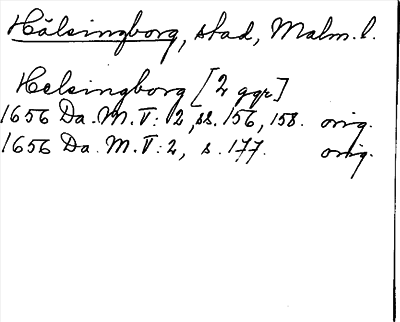 Hälsingborg, stad, Malm. l.
Helsingborg [2 ggr]
1656 Da. M. V: 2, ss. 156, 158. orig.
1656 Da. M. V: 2, s. 177. orig.